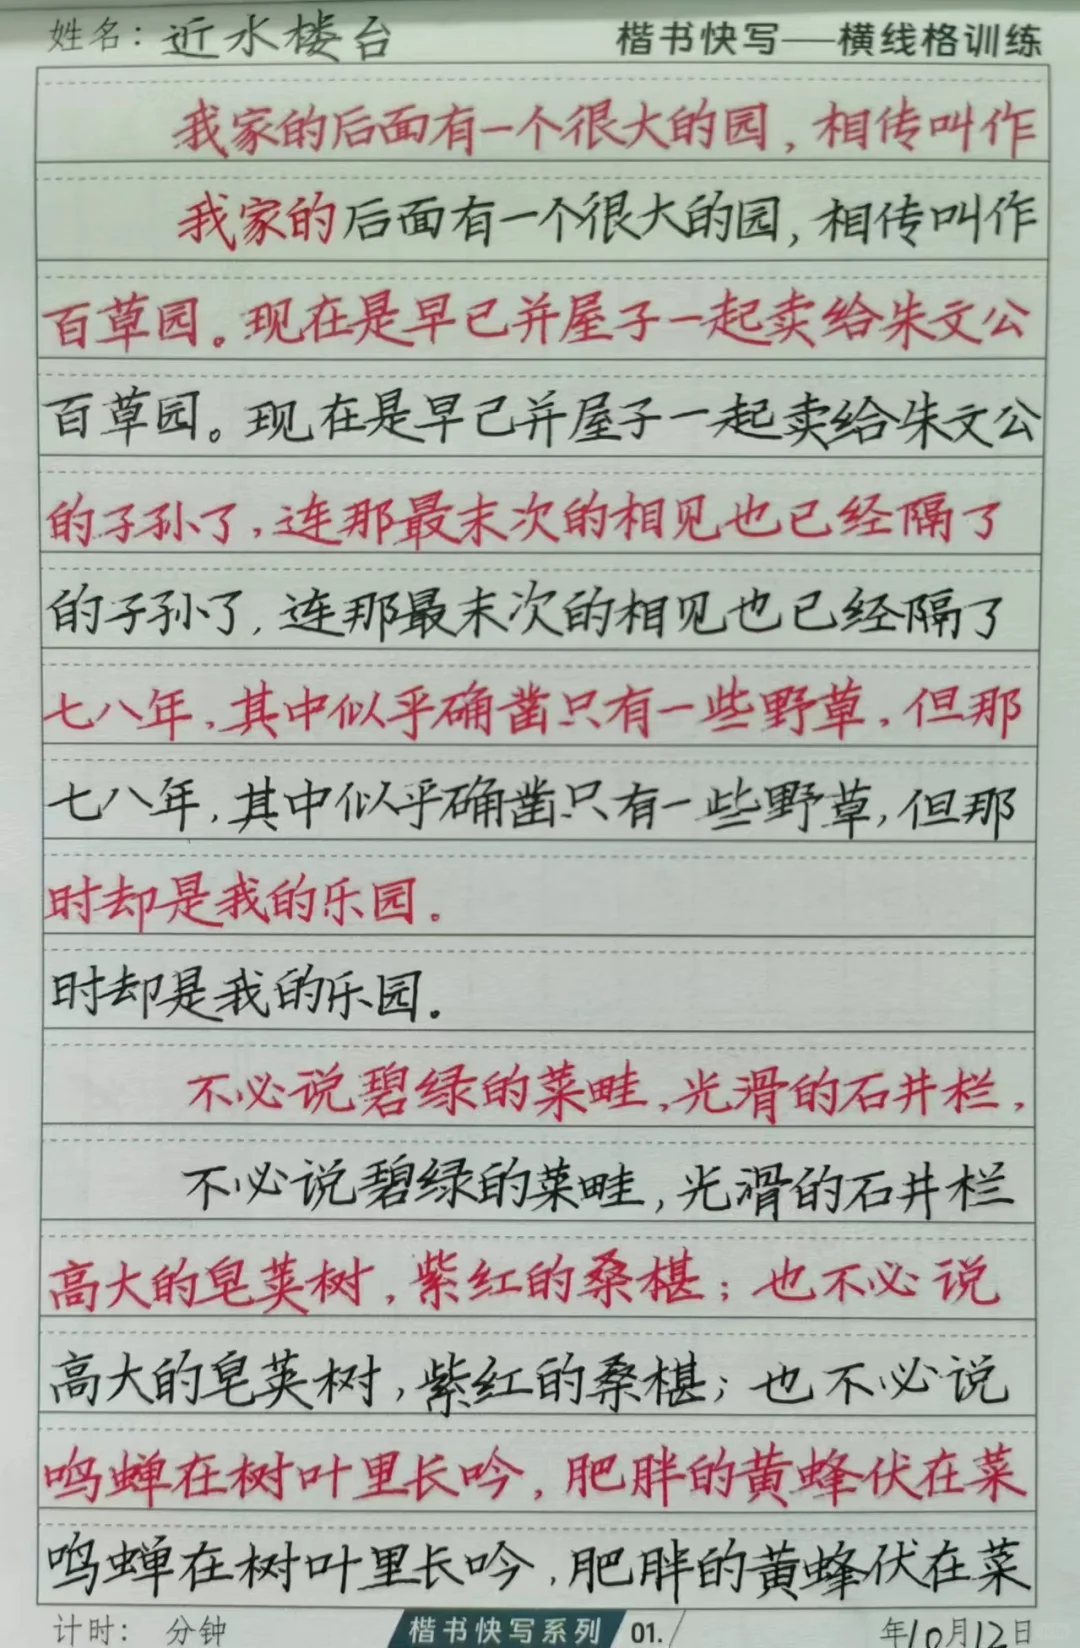 姓名：近水楼台 楷书快写——横线格训练
我家的后面有一个很大的园，相传叫作
我家的后面有一个很大的园，相传叫作
百草园。现在是早已并屋子一起卖给朱文公
百草园。现在是早已并屋子一起卖给朱文公
的子孙了，连那最末次的相见也已经隔了
的子孙了，连那最末次的相见也已经隔了
七八年，其中似乎确凿只有一些野草，但那
七八年，其中似乎确凿只有一些野草，但那
时却是我的乐园。
时却是我的乐园。
不必说碧绿的菜畦，光滑的石井栏，
不必说碧绿的菜畦，光滑的石井栏
高大的皂荚树，紫红的桑椹；也不必说
高大的皂荚树，紫红的桑椹；也不必说
鸣蝉在树叶里长吟，肥胖的黄蜂伏在菜
鸣蝉在树叶里长吟，肥胖的黄蜂伏在菜
计时： 分钟 楷书快写系列 01. 年10月12日